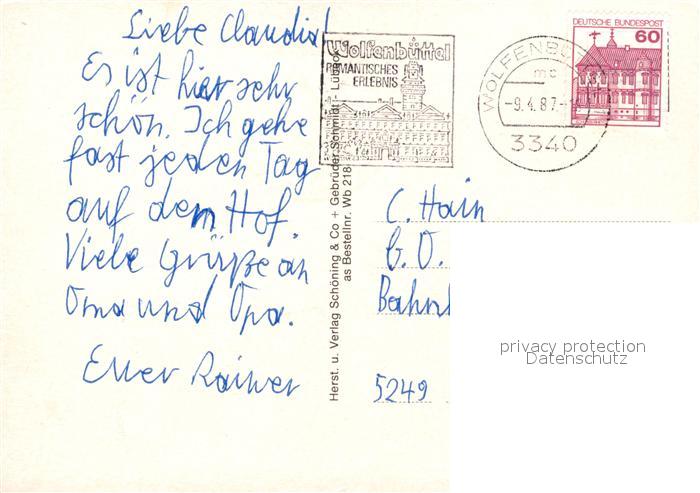 Liebe Claudia!
Es ist hier sehr
schön. Ich gehe
fast jeden Tag
auf dem Hof.
Viele Grüße an
Oma und Opa.
Euer Rainer
Wolfenbüttel
ROMANTISCHES
ERLEBNIS
WOLFENBÜ
mc
-9.4.87.-
3340
DEUTSCHE BUNDESPOST
60
Herst. u. Verlag Schöning & Co + Gebrüder Schmidt - Lübeck
as Bestellnr. Wb 218
C. Hain
Bahnh
5249
privacy protection
Datenschutz